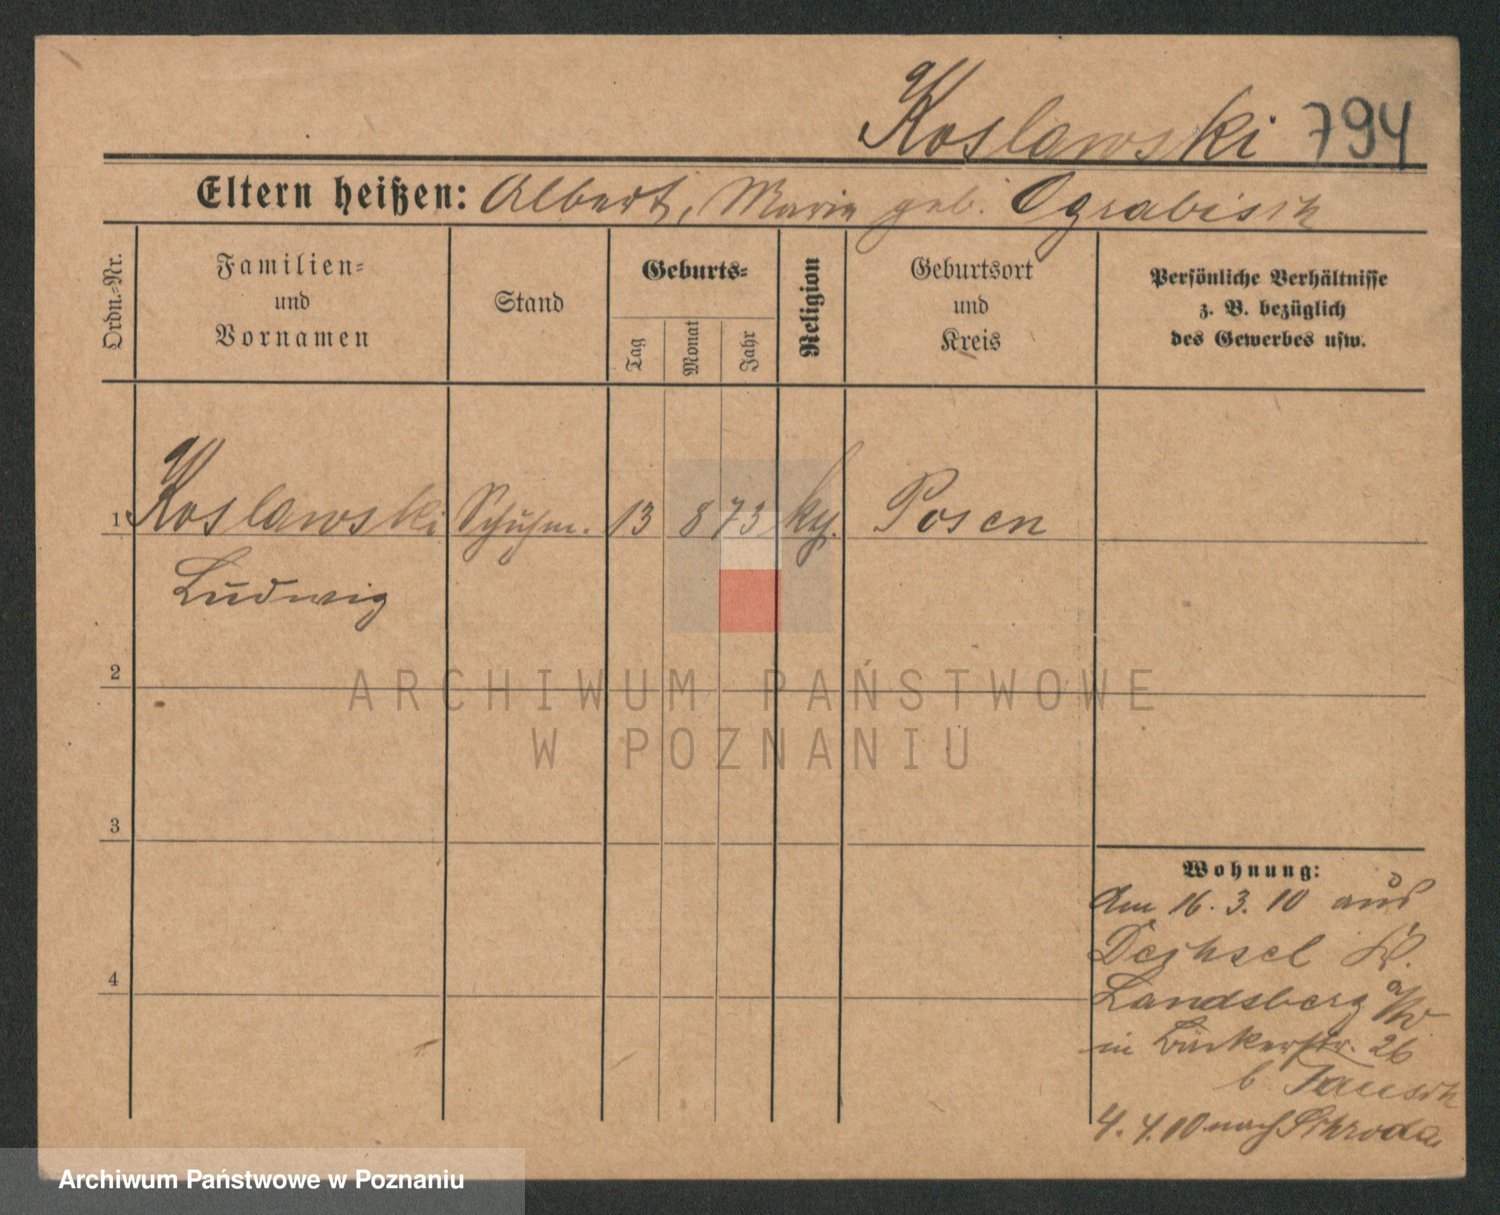 Koslawski 794
Eltern heißen: Albert, Maria geb. Ograbisch
Ordn.=Nr.
Familien=
und
Vornamen
Stand
Geburts=
Tag
Monat
Jahr
Religion
Geburtsort
und
Kreis
Persönliche Verhältnisse
z. B. bezüglich
des Gewerbes usw.
1 Koslawski Schuhm. 13 8 73 Posen
Ludwig
2
3
4
Wohnung:
Am 16. 3. 10 aus
Dechsel Kr.
Landsberg a/W.
in Bäckerstr. 26
b. Tausch
4. 4. 10 nach Schroda
ARCHIWUM PAŃSTWOWE
W POZNANIU
Archiwum Państwowe w Poznaniu